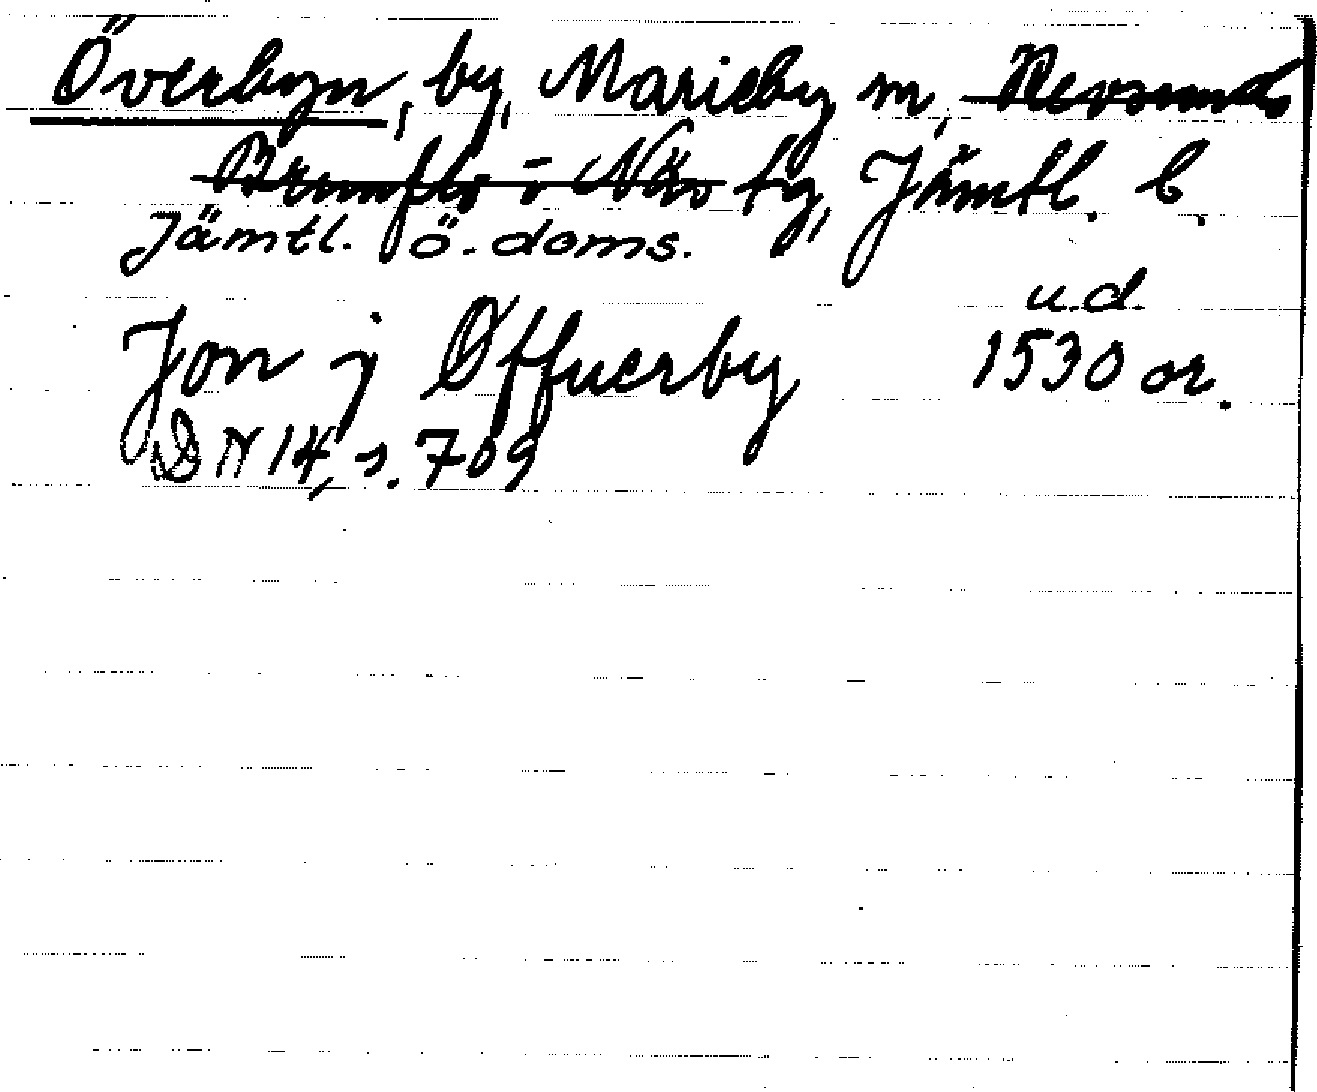 Överbyn, by, Marieby sn, Revsunds
Brunflo o Näs tg, Jämtl. l.
Jämtl. ö. doms.
u.d.
Jon j Øffuerby 1530 or.
DN 14, s. 709